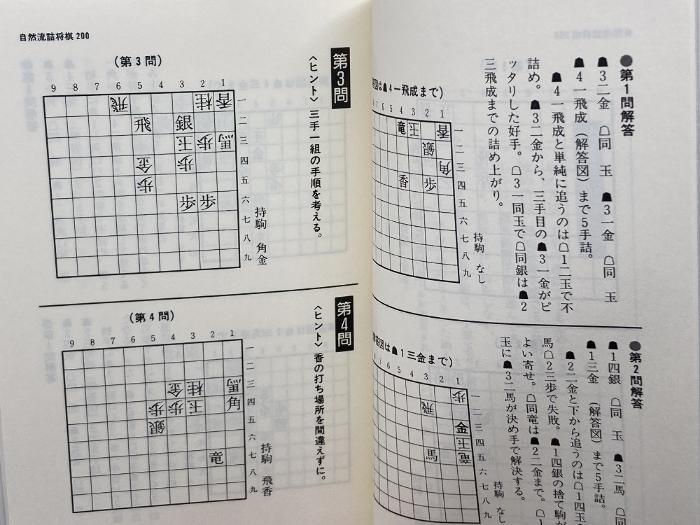 ●第1問解答
☗3二金 ☖同 玉 ☗3一金 ☖同 玉
☗4一飛成（解答図）まで5手詰。
☗4一飛成と単純に追うのは☖1二玉で不
詰め。☗3二金から、三手目の☗3一金がピ
ッタリした好手。☖3一同玉で☖同銀は☗2
三飛成までの詰め上がり。
図は☗4一飛成まで）
6 5 4 3 2 1
一
二
三
四
五
六
七
八
九
竜 王
銀
角
香 歩
持駒 なし
●第2問解答
☗1四銀 ☖同 玉 ☗3二馬
☗1三金（解答図）まで5手詰。
☗2二金と下から追うのは☖1四玉
馬☖2三歩で失敗。☗1四銀の捨て駒が
よい寄せ。☖同竜は☗2二金まで。
玉に☗3二馬が決め手で解決する。
図は☗1三金まで）
5 4 3 2 1
一
二
三
四
五
六
七
八
九
歩
飛
金
玉
馬 竜
持駒 なし
自然流詰将棋 200
第3問
〈ヒント〉三手一組の手順を考える。
（第3問）
9 8 7 6 5 4 3 2 1
一
二
三
四
五
六
七
八
九
飛 桂 香
飛 銀
玉 歩 馬
金 歩
歩
歩 歩
持駒 角金
第4問
〈ヒント〉香の打ち場所を間違えずに。
（第4問）
9 8 7 6 5 4 3 2 1
一
二
三
四
五
六
七
八
九
金 桂 馬
歩 歩 玉 角
銀
竜
持駒 飛香